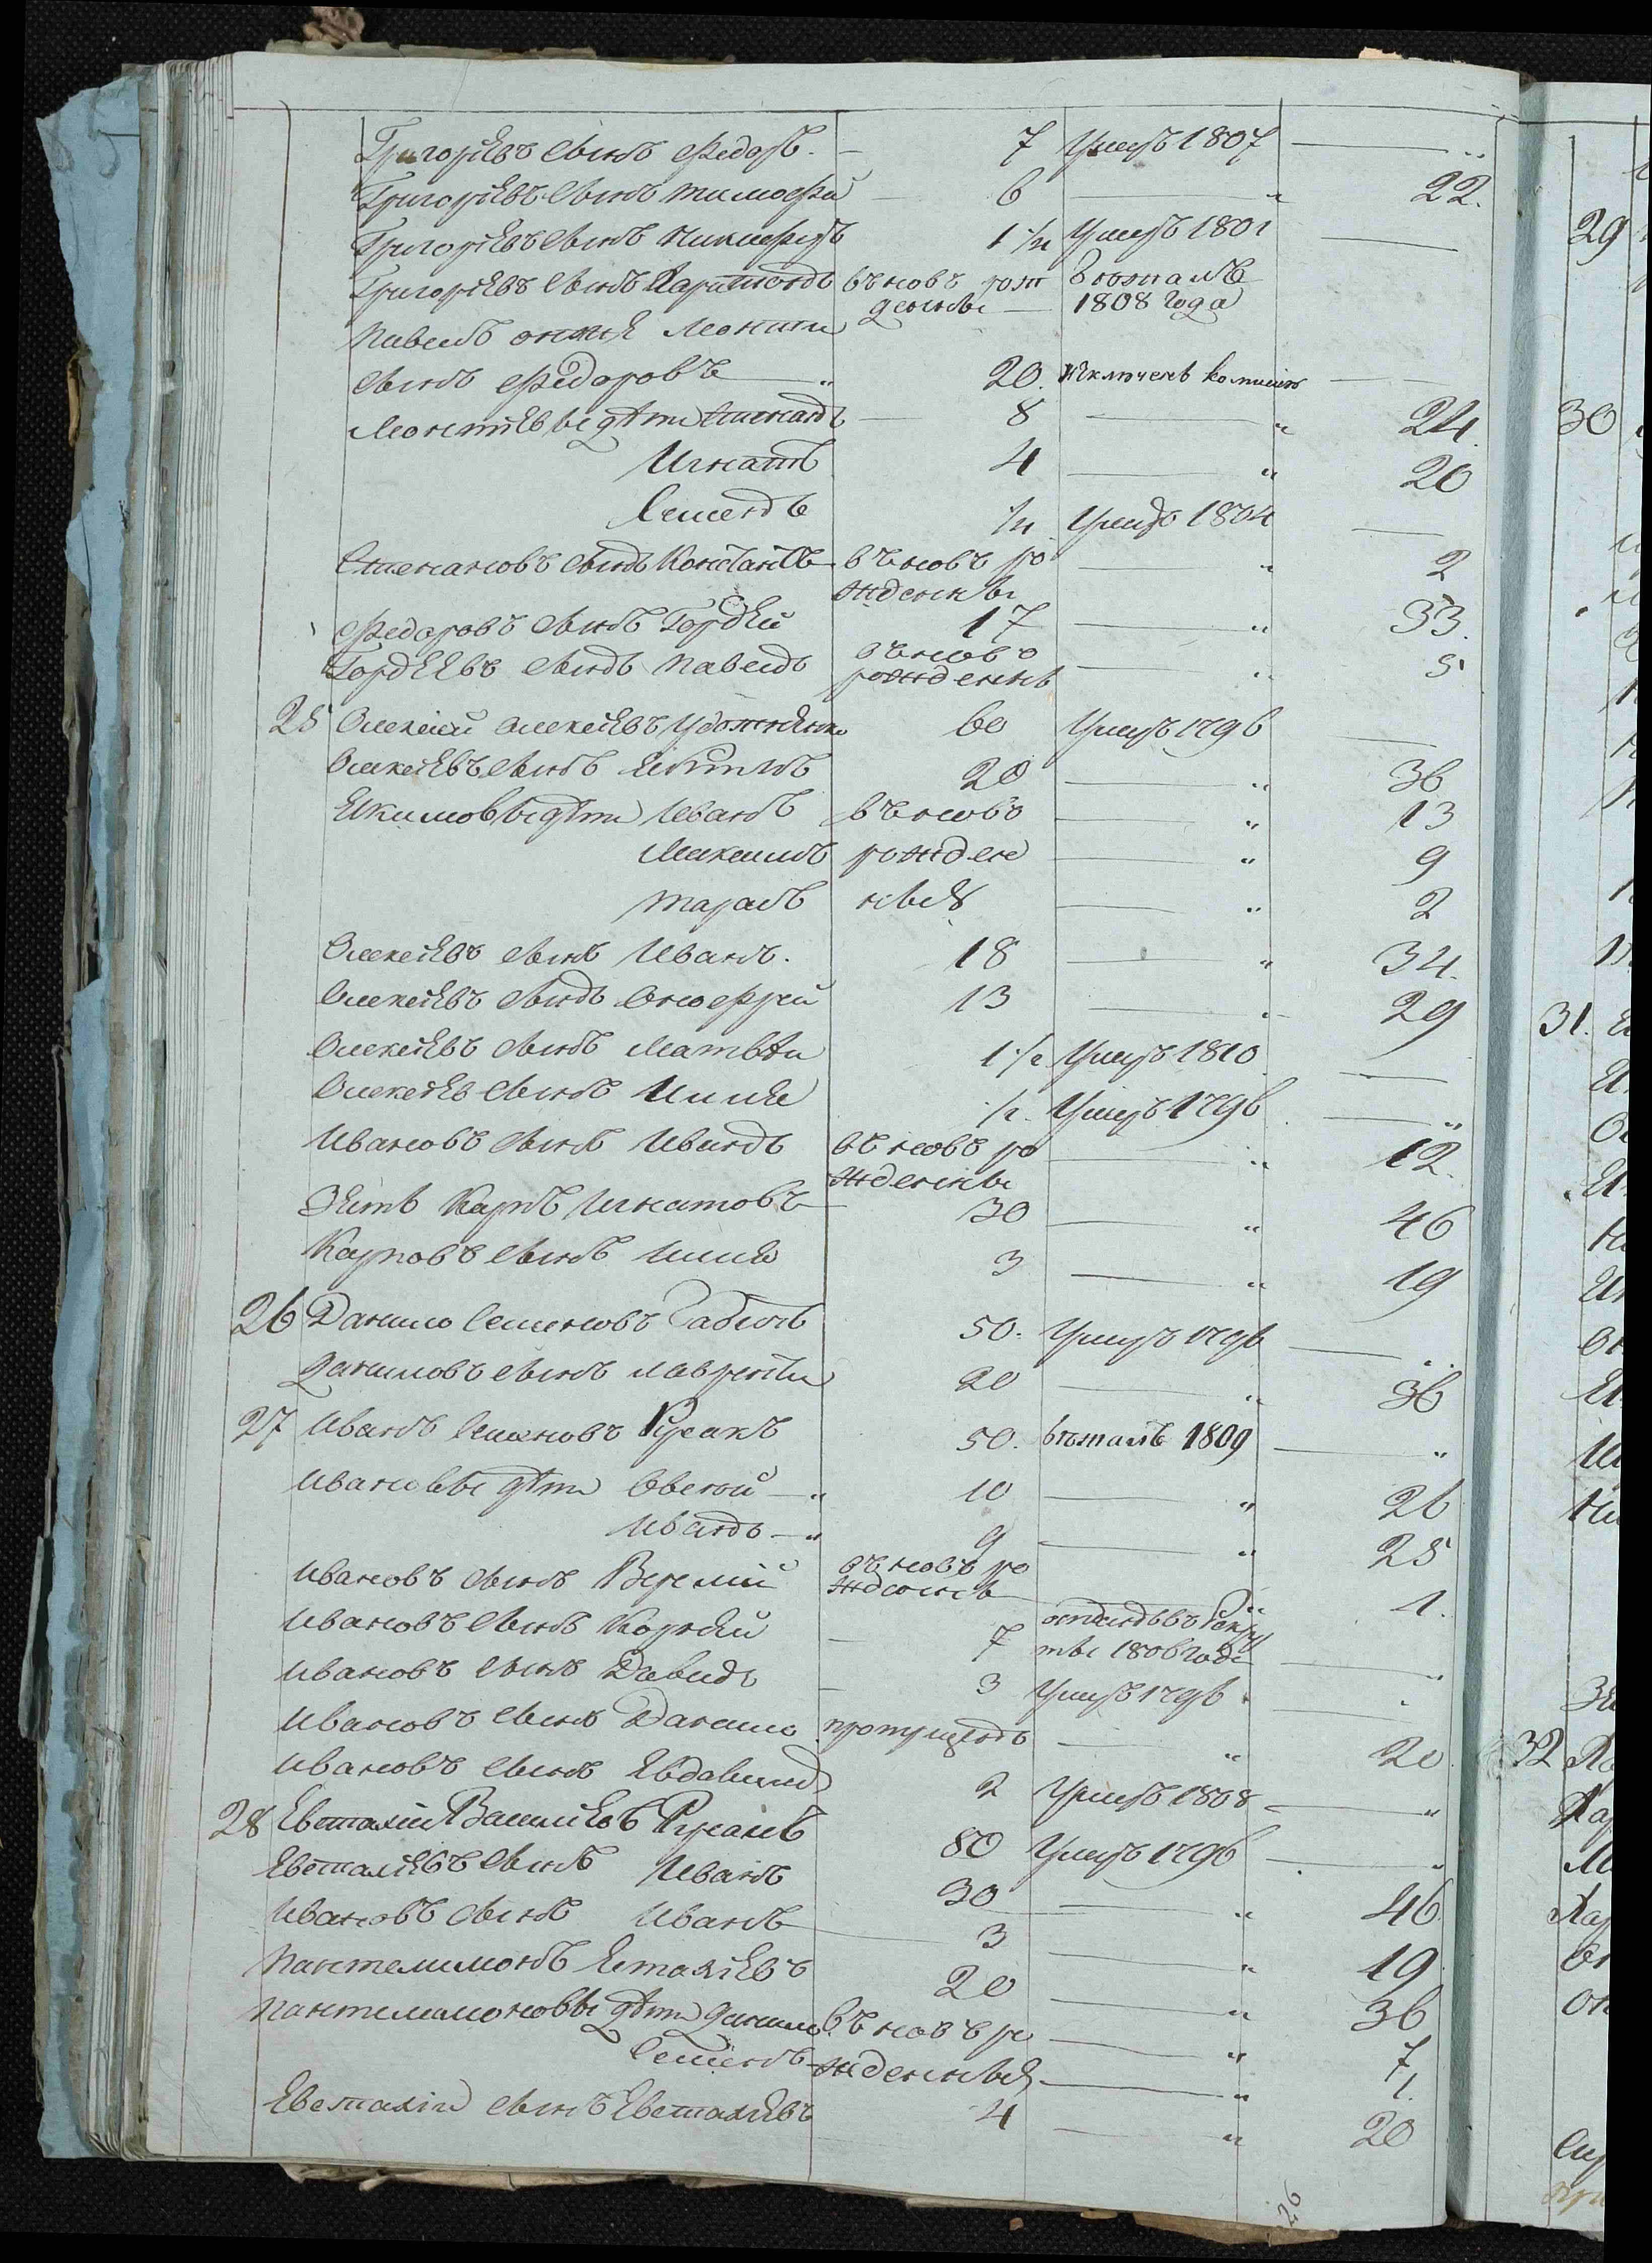 Григорьевъ сынъ Федоръ. 7 Умеръ 1807
Григорьевъ сынъ Тимофей 6 22.
Григорьевъ сынъ Никифоръ 1 1/2 Умеръ 1801
Григорьевъ сынъ Харитонъ въновь рож Въ бегахъ
денны 1808 года
Павелъ онже Леонтий
сынъ Федоровъ 20. исключенъ
Леонтьевы дети 8 24.
Игнатъ 4 20
Семенъ 1/2 Умеръ 1804
Степановъ сынъ Константинъ въновь ро 2
жденны
Федоровъ сынъ Гордей 17 33.
Гордеевъ сынъ Павелъ въновь 5
рожденны
25 Алексей Алексеевъ 60 Умеръ 1796
Алексеевъ сынъ 20 36
Якимовы дети Иванъ въновь 13
Максимъ рожден 9
Тарасъ ныя 2
Алексеевъ сынъ Иванъ. 18 34.
Алексеевъ сынъ Онофрей 13 29
Алексеевъ сынъ Матвей 1 1/2 Умеръ 1810
Алексеевъ сынъ Илия 1/2. Умеръ 1796
Ивановъ сынъ Иванъ въновь ро 12.
жденны
Зять Карпъ Игнатовъ 30 46
Карповъ сынъ Илия 3 19
26 Данило Семеновъ 50. Умеръ 1796
Даниловъ сынъ Лаврентий 20 36
27 Иванъ Семеновъ Русакъ 50. въ бегахъ 1809
Ивановы дети Овсей 10 26
Иванъ 9 25
Ивановъ сынъ Веремий въновь ро 1.
жденны
Ивановъ сынъ Корней 7 отданъ въ рекру
ты 1806 года
Ивановъ сынъ Давидъ 3 Умеръ 1796
Ивановъ сынъ Данило пропущенъ 20
Ивановъ сынъ Евдокимъ 2 Умеръ 1808
28 Евстафий Васильевъ Русакъ 80 Умеръ 1796
Евстафьевъ сынъ Иванъ 30 46.
Ивановъ сынъ Иванъ 3 19
Пантелимонъ Естафьевъ 20 36
Пантелимоновы дети Данило въновь ро 7
Семенъ жденныя 1.
Евстафия сынъ Евстафьевъ 4 20
29
30
31.
32